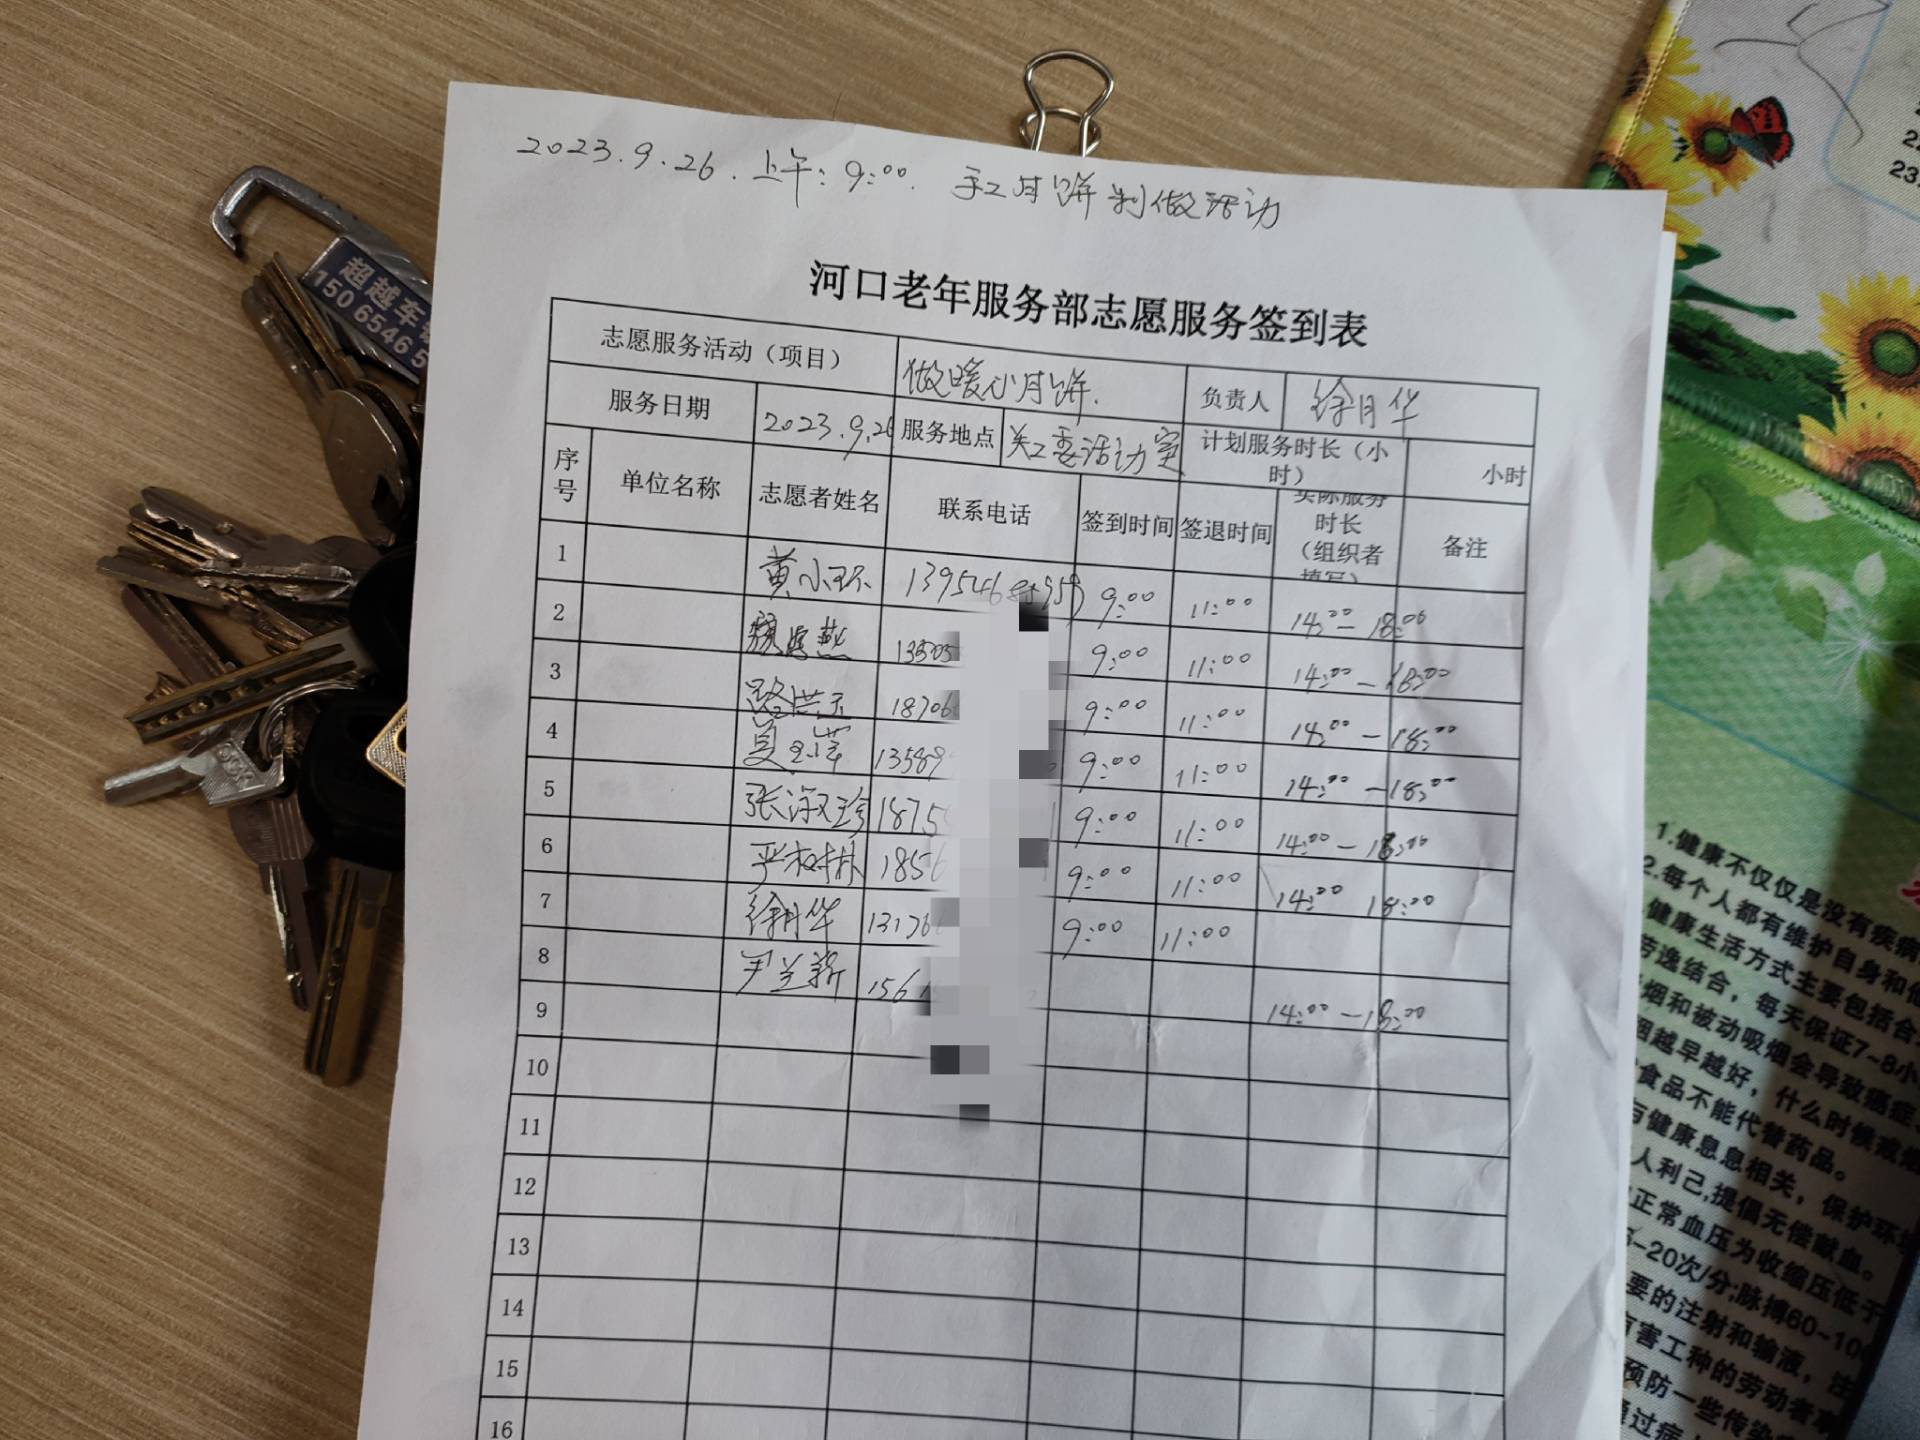 2023.9.26.上午:9:00. 手工月饼制做活动
河口老年服务部志愿服务签到表
志愿服务活动（项目） 做暖心月饼. 负责人 徐月华
服务日期 2023.9.26 服务地点 关工委活动室 计划服务时长（小时） 小时
序号 单位名称 志愿者姓名 联系电话 签到时间 签退时间 实际服务时长（组织者填写） 备注
1 黄小环 139546 959 9:00 11:00 14:00-18:00
2 燕 13505 9:00 11:00 14:00-18:00
3 路洪玉 18706 9:00 11:00 14:00-18:00
4 13589 9:00 11:00 14:00-18:00
5 张淑珍 1875 9:00 11:00 14:00-18:00
6 严树林 1856 9:00 11:00 14:00 18:00
7 徐月华 13176 9:00 11:00
8 尹兰新 156 14:00-18:00
9
10
11
12
13
14
15
16
超越车
150 6546 5
22
23.
1.健康不仅仅是没有疾病
2.每个人都有维护自身和他
健康生活方式主要包括合
劳逸结合，每天保证7-8小
烟和被动吸烟会导致癌症
烟越早越好，什么时候戒烟
食品不能代替药品。
与健康息息相关，保护环
人利己,提倡无偿献血。
正常血压为收缩压低于
-20次/分;脉搏60~10
要的注射和输液，注
有害工种的劳动者
预防一些传染
通过病